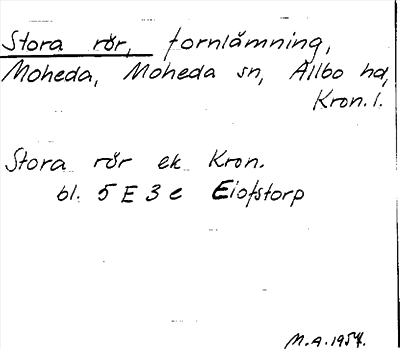 Stora rör, fornlämning,
Moheda, Moheda sn, Allbo hd,
Kron. l.
Stora rör ek Kron.
bl. 5 E 3 e Elofstorp
M.A. 1954.